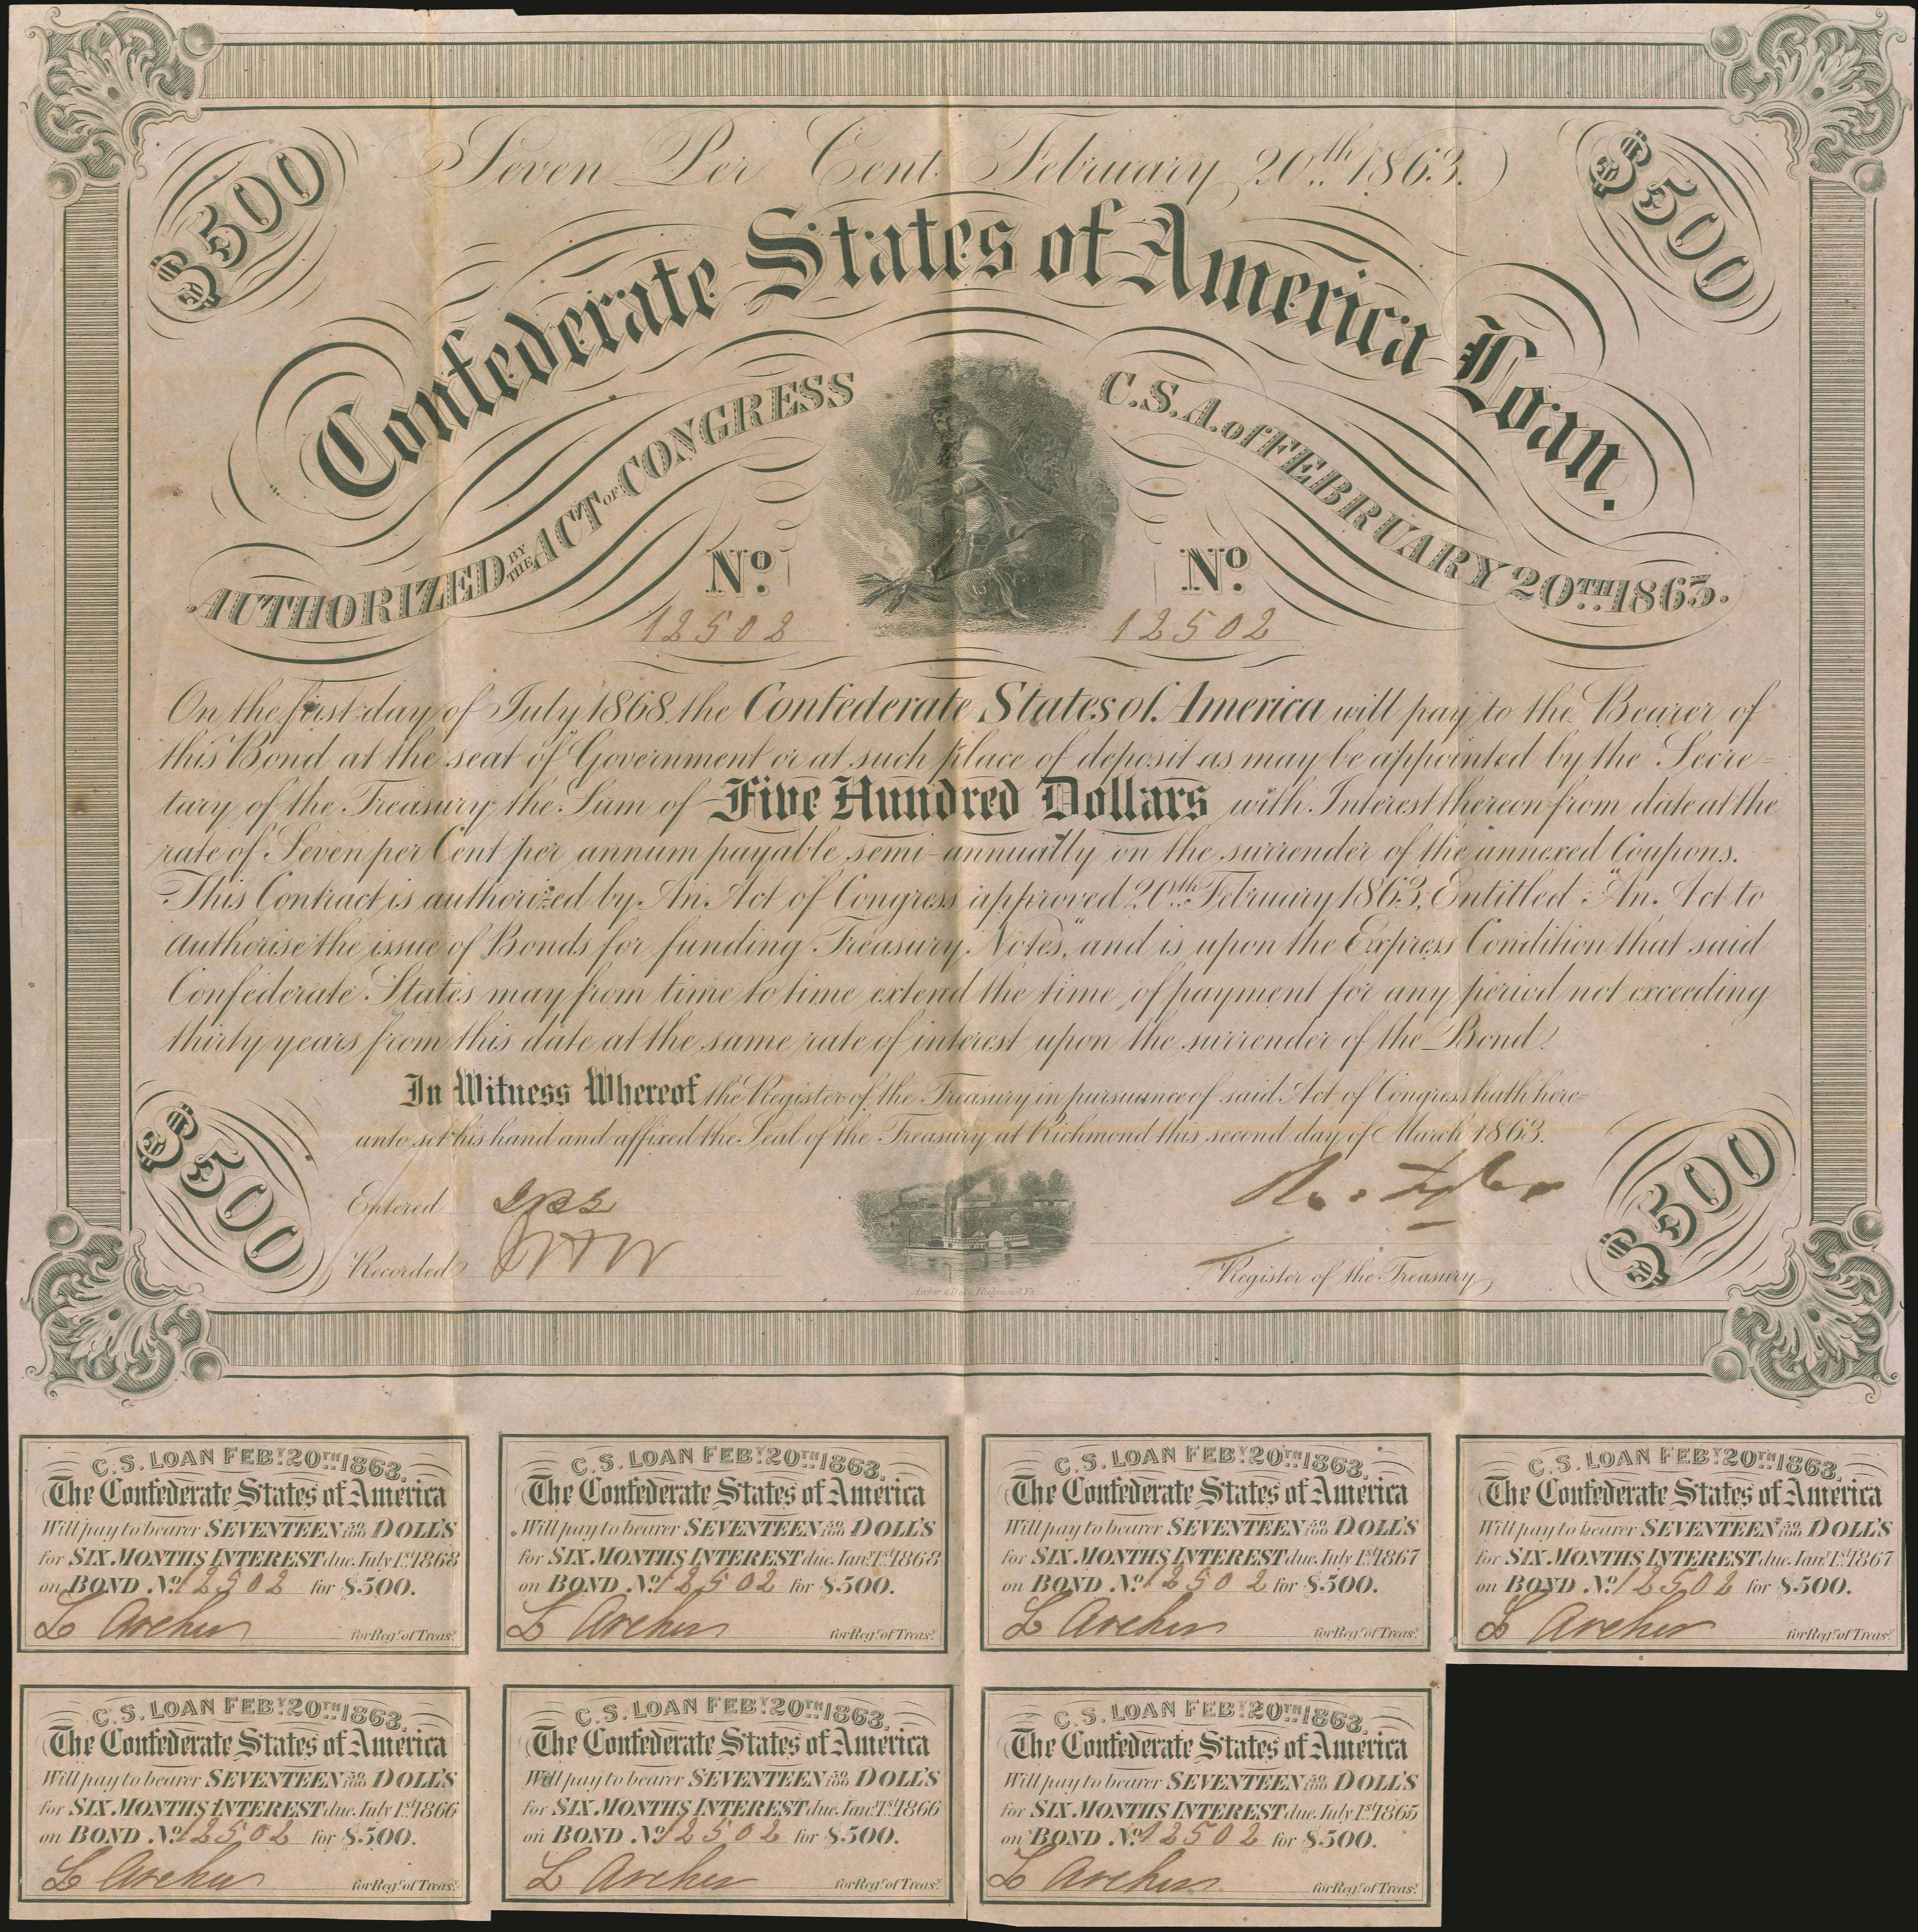 $500
Seven Per Cent. February 20th 1863.
$500
Confederate States of America Loan.
AUTHORIZED BY THE ACT OF CONGRESS C.S.A. of FEBRUARY 20TH 1863.
No. No.
12502 12502
On the first day of July 1868, the Confederate States of America will pay to the Bearer of
this Bond at the seat of Government or at such place of deposit as may be appointed by the Secre-
tary of the Treasury the Sum of Five Hundred Dollars with Interest thereon from date at the
rate of Seven per Cent per annum payable semi-annually on the surrender of the annexed Coupons.
This Contract is authorized by An Act of Congress approved 20th February 1863, Entitled "An Act to
authorise the issue of Bonds for funding Treasury Notes," and is upon the Express Condition that said
Confederate States may from time to time extend the time of payment for any period not exceeding
thirty years from this date at the same rate of interest upon the surrender of the Bond.
In Witness Whereof the Register of the Treasury in pursuance of said Act of Congress hath here=
unto set his hand and affixed the Seal of the Treasury at Richmond this second day of March 1863.
$500
$500
Entered
Recorded
Ro. Tyler
Register of the Treasury
Archer & Daly, Richmond, Va.
C.S. LOAN FEBY. 20TH 1863.
The Confederate States of America
Will pay to bearer SEVENTEEN 50/100 DOLL'S
for SIX MONTHS INTEREST due July 1st 1868
on BOND No. 12502 for $500.
L Archer for Regr. of Treasy.
C.S. LOAN FEBY. 20TH 1863.
The Confederate States of America
Will pay to bearer SEVENTEEN 50/100 DOLL'S
for SIX MONTHS INTEREST due Jany. 1st 1868
on BOND No. 12502 for $500.
L Archer for Regr. of Treasy.
C.S. LOAN FEBY. 20TH 1863.
The Confederate States of America
Will pay to bearer SEVENTEEN 50/100 DOLL'S
for SIX MONTHS INTEREST due July 1st 1867
on BOND No. 12502 for $500.
L Archer for Regr. of Treasy.
C.S. LOAN FEBY. 20TH 1863.
The Confederate States of America
Will pay to bearer SEVENTEEN 50/100 DOLL'S
for SIX MONTHS INTEREST due Jany. 1st 1867
on BOND No. 12502 for $500.
L Archer for Regr. of Treasy.
C.S. LOAN FEBY. 20TH 1863.
The Confederate States of America
Will pay to bearer SEVENTEEN 50/100 DOLL'S
for SIX MONTHS INTEREST due July 1st 1866
on BOND No. 12502 for $500.
L Archer for Regr. of Treasy.
C.S. LOAN FEBY. 20TH 1863.
The Confederate States of America
Will pay to bearer SEVENTEEN 50/100 DOLL'S
for SIX MONTHS INTEREST due Jany. 1st 1866
on BOND No. 12502 for $500.
L Archer for Regr. of Treasy.
C.S. LOAN FEBY. 20TH 1863.
The Confederate States of America
Will pay to bearer SEVENTEEN 50/100 DOLL'S
for SIX MONTHS INTEREST due July 1st 1865
on BOND No. 12502 for $500.
L Archer for Regr. of Treasy.